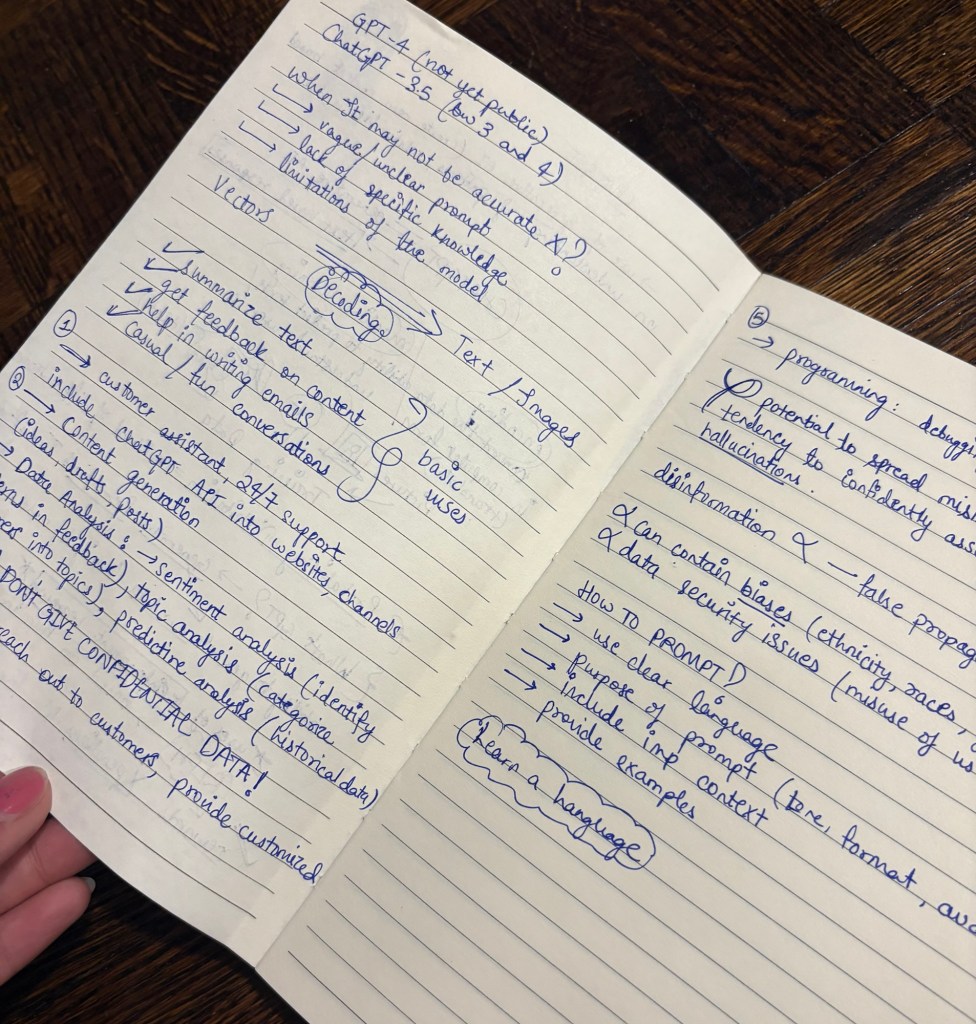 GPT-4 (not yet public)
ChatGPT - 3.5 (bw 3 and 4)
When It may not be accurate X?
→ vague/unclear prompt
→ lack of specific knowledge
→ limitations of the model
Vectors
Decoding → Text / Images
✓ summarize text
✓ get feedback on content
✓ help in writing emails
✓ casual / fun conversations
} basic uses
① → customer assistant, 24/7 support
include ChatGPT API into websites, channels
② → Content generation
(ideas, drafts, posts)
→ Data Analysis: → sentiment analysis (identify
in feedback), topic analysis (categorize
into topics), predictive analysis (historical data)
DON'T GIVE CONFIDENTIAL DATA!
out to customers, provide customized
⑤
→ programming:
potential to spread
tendency to confidently
hallucinations.
disinformation α — false
α can contain biases (ethnicity, races,
α data security issues (misuse of
HOW TO PROMPT?
→ use clear language
→ Purpose of prompt (tone, format,
→ Include imp context
→ provide examples
Learn a language